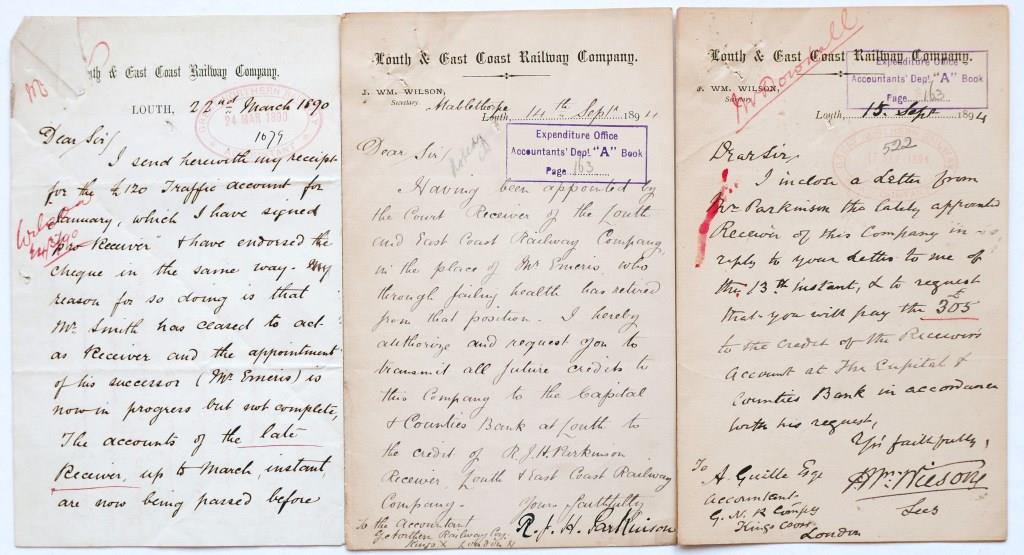 th & East Coast Railway Company.
LOUTH, 22nd March 1890
24 MAR 1890
1079
Dear Sir/
I send herewith my receipt
for the £120 Traffic account for
January, which I have signed
"pro Receiver" & have endorsed the
cheque in the same way. My
reason for so doing is that
Mr. Smith has ceased to act
as Receiver and the appointment
of his successor (Mr Emeris) is
now in progress but not complete,
The accounts of the late
Receiver, up to March, instant,
are now being passed before
Louth & East Coast Railway Company.
J. WM. WILSON,
Secretary
Mablethorpe
Louth, 14th Septr 1894
Expenditure Office
Accountants' Dept. "A" Book
Page 163
Dear Sir/
Having been appointed by
the Court Receiver of the Louth
and East Coast Railway Company,
in the place of Mr Emeris, who
through failing health has retired
from that position - I hereby
authorize and request you to
transmit all future credits to
this Company to the Capital
& Counties Bank at Louth to
the credit of R.J.H. Parkinson
Receiver, Louth & East Coast Railway
Company.
Yours faithfully
R. J. H. Parkinson
To the Accountant
Gt Northern Railway Coy.
Kings X London N
Louth & East Coast Railway Company.
J. WM. WILSON,
Secretary
Mr Dowdall
Expenditure Office
Accountants' Dept. "A" Book
Page 163
Louth, 15 Sept 1894
522
Dear Sir,
I inclose a letter from
Mr Parkinson the lately appointed
Receiver of this Company in
reply to your letter to me of
the 13th instant, & to request
that you will pay the £305
to the credit of the Receivers
Account at The Capital &
Counties Bank in accordance
with his request,
Yrs faithfully,
J Wm Wilson
Secy
To
A. Guille Esqr
Accountant
G. N. R Compy
Kings Cross
London